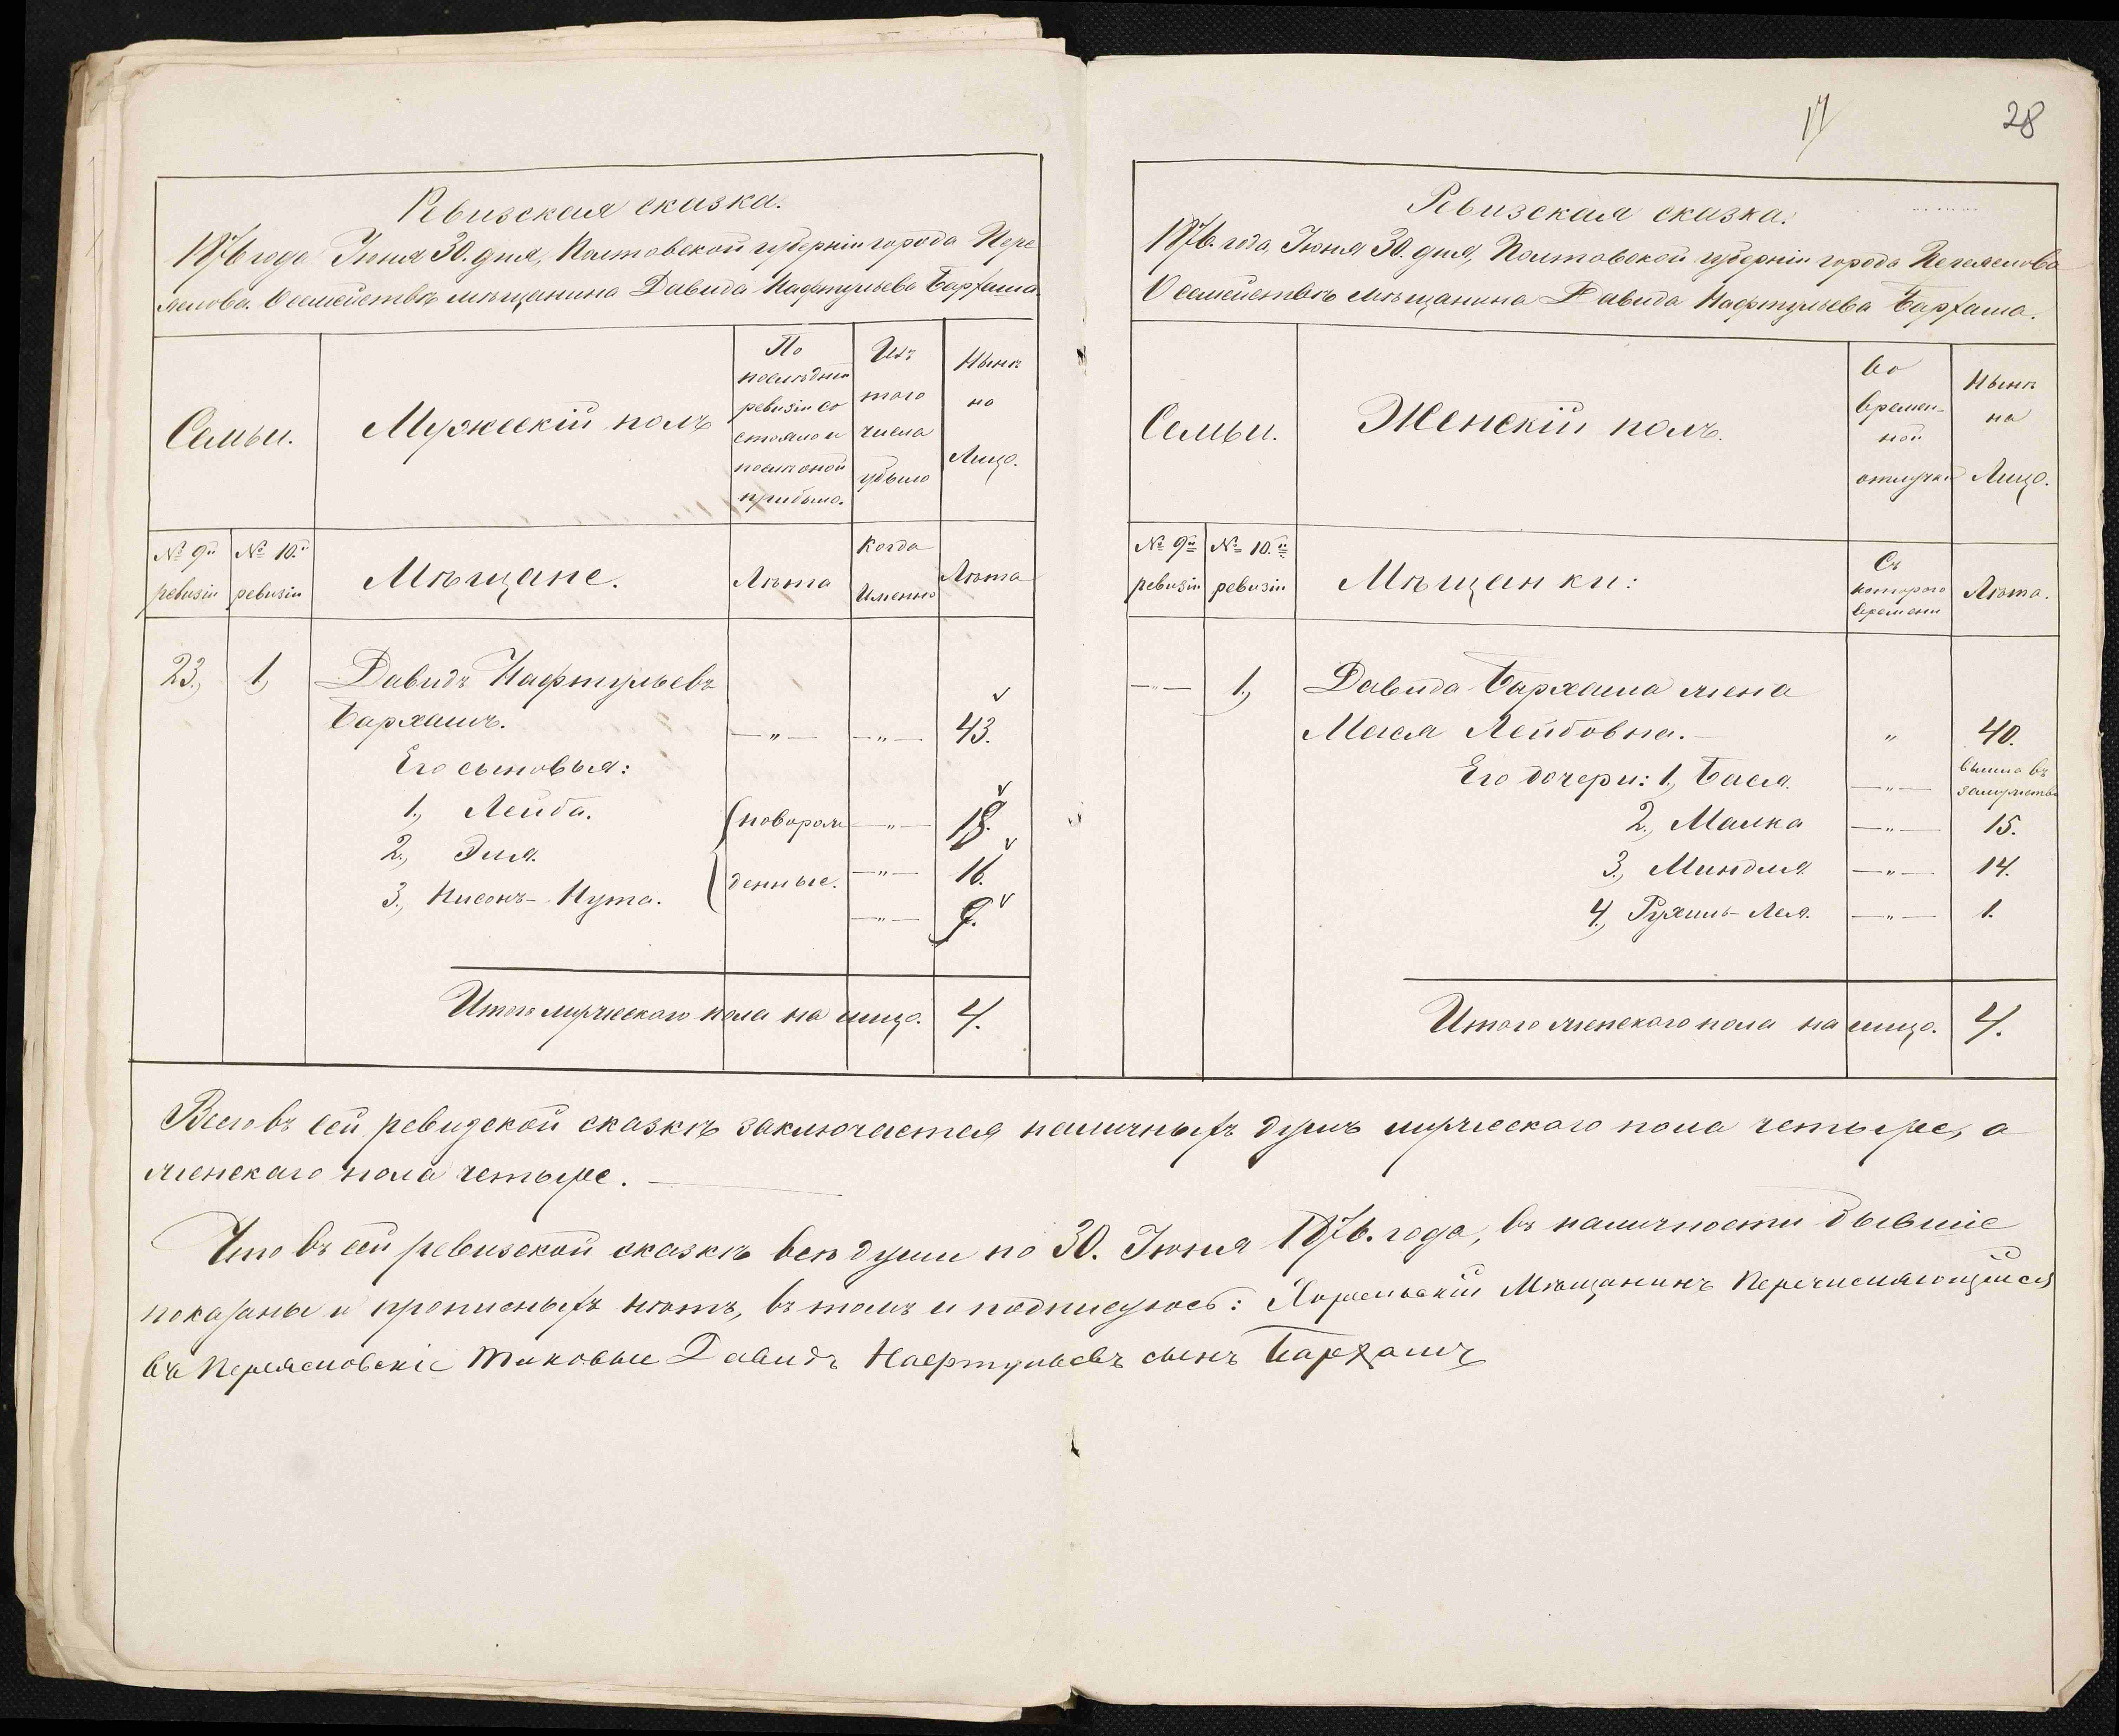 28
Ревизская сказка.
1876 года Июня 30. дня, Полтовской губерніи города Пере
яслова. О семействѣ мѣщанина Давида Нафтульева Бархаша.
Семьи.
Мужескій полъ
По
послѣдней
ревизіи со
стояло и
послѣ оной
прибыло.
Изъ
того
числа
убыло
Нынѣ
на
Лицо.
№ 9й
ревизіи
№ 10.й
ревизіи
Мѣщане.
Лѣта
Когда
Именно
Лѣта
23., 1, Давидъ Нафтульевъ
Бархашъ. —„— —„— 43.
Его сыновья:
1., Лейба. новорож —„— 18.
2., Эля. денные. —„— 16.
3., Нисонъ-Нута. —„— 9.
Итого мужескаго пола на лицо. 4.
Ревизская сказка.
1876. года, Июня 30. дня, Полтовской губерніи города Переяслова
О семействѣ мѣщанина Давида Нафтульева Бархаша.
Семьи.
Женскій полъ.
Во
времен-
ной
отлучкѣ
Нынѣ
на
Лицо.
№ 9й
ревизіи
№ 10.й
ревизіи
Мѣщанки:
Съ
котораго
времени
Лѣта.
—„— 1., Давида Бархаша жена
Лейбовна.— „ 40.
Его дочери: 1, Бася. —„— вышла въ
замужство
2., Малка —„— 15.
3., Миндля —„— 14.
4., Рухшь-Лея. —„— 1.
Итого женскаго пола на лицо. 4.
Всего въ сей ревизской сказкѣ заключается наличныхъ душъ мужескаго пола четыре, а
женскаго пола четыре.
Что въ сей ревизской сказкѣ всѣ души по 30. Июня 1876. года, въ наличности бывшіе
показаны и прописныхъ нѣтъ, въ томъ и подписуюсь: Хорольскій Мѣщанинъ Перечисляющійся
въ Переясловскіе таковые Давидъ Нафтульевъ сынъ Бархашъ